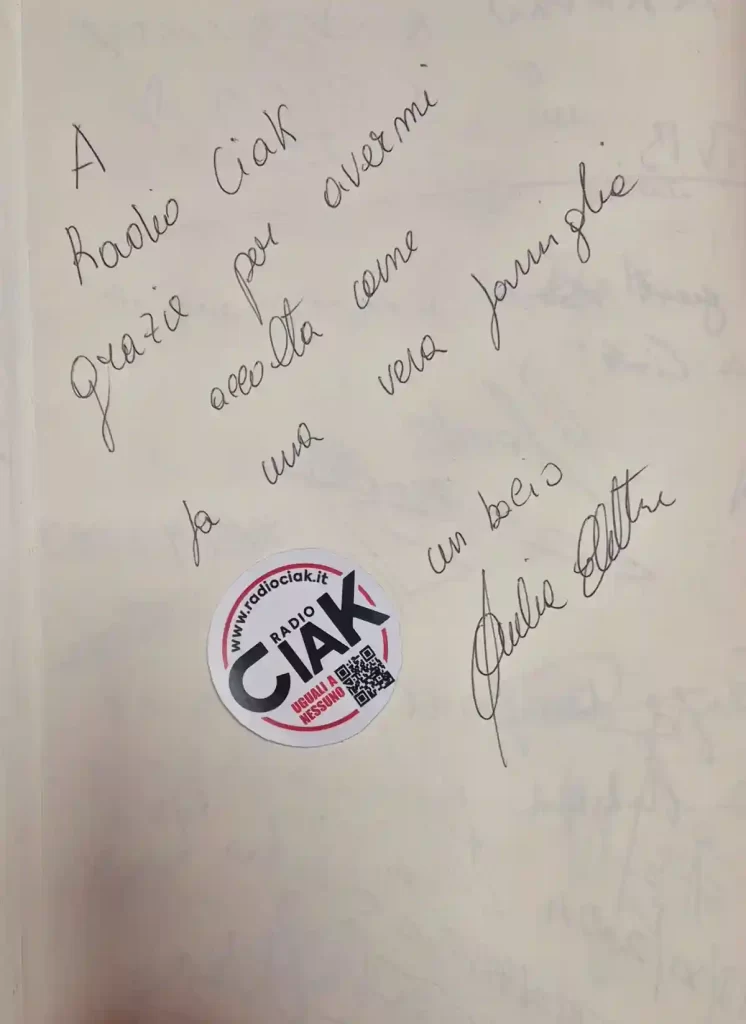 A
Radio Ciak
grazie per avermi
accolta come
fa una vera famiglia
un bacio
Giulia
www.radiociak.it
RADIO
CIAK
UGUALI A
NESSUNO